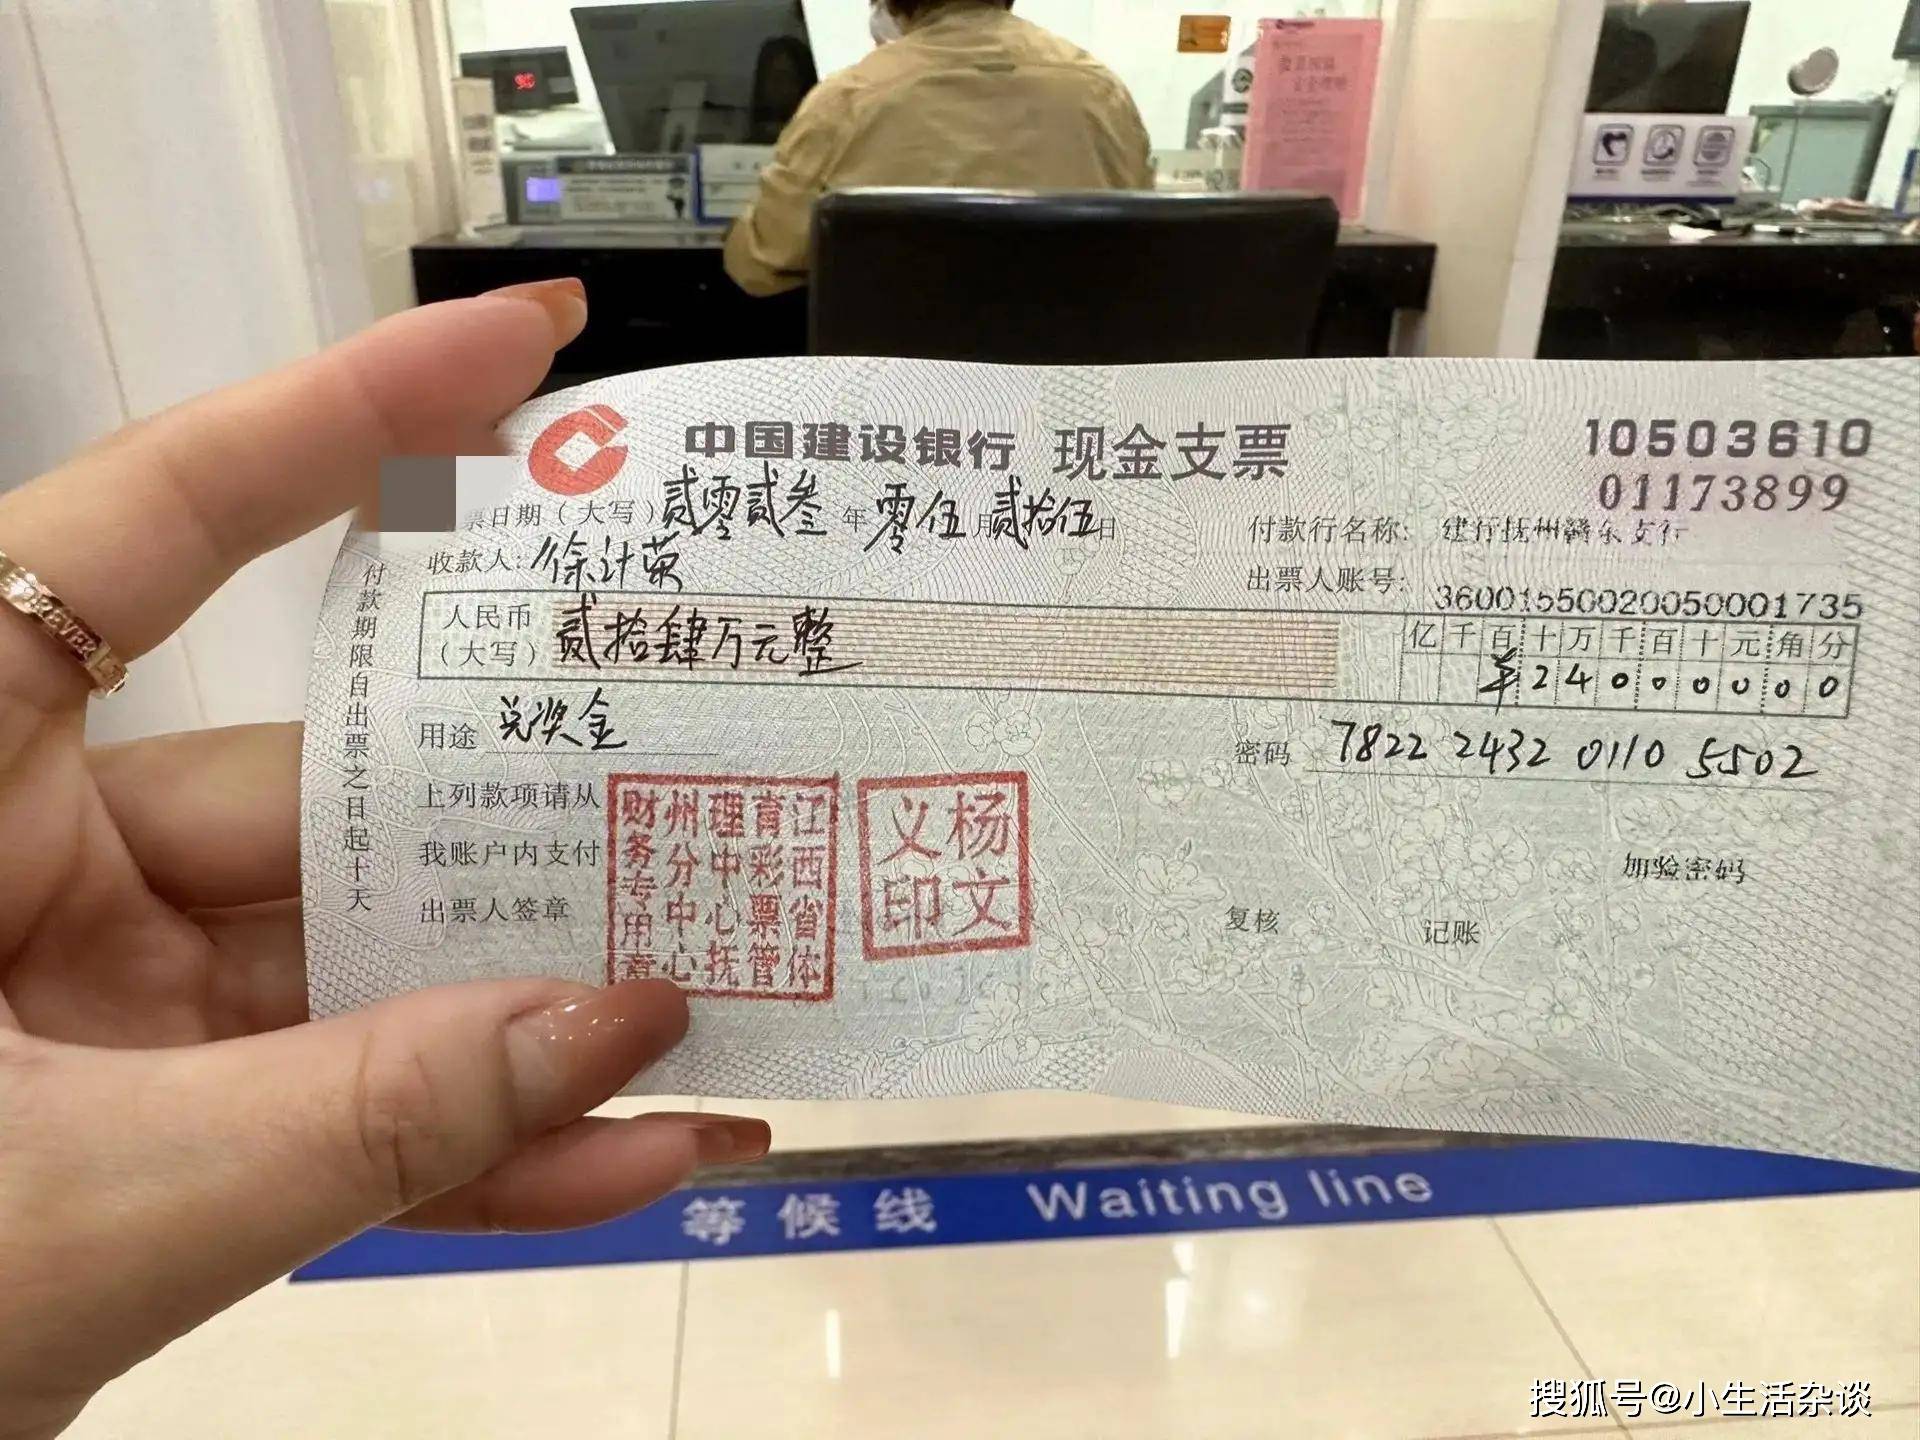 中国建设银行 现金支票
10503610
01173899
票日期（大写）贰零贰叁年零伍月贰拾伍日
付款行名称：建行抚州赣东支行
收款人：徐计荣
出票人账号：36001550020050001735
人民币（大写）贰拾肆万元整
亿千百十万千百十元角分
¥24000000
用途 兑奖金
密码 7822 2432 0110 5502
上列款项请从
我账户内支付
出票人签章
江西省体育彩票管理中心抚州分中心财务专用章
杨文义印
复核
记账
加验密码
付款期限自出票之日起十天
等候线 Waiting line
搜狐号@小生活杂谈